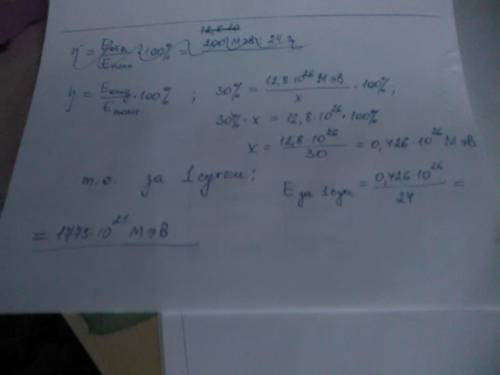 12,8·10
η = Eзат / Eполн · 100% = 200 МэВ · 24 ч
η = Eзатр / Eполн · 100% ; 30% = 12,8·10²⁶ МэВ / x · 100% ;
30% · x = 12,8·10²⁶ · 100%
x = 12,8·10²⁶ / 30 = 0,426·10²⁶ МэВ
т.о. за 1 сутки: E за 1 сут = 0,426·10²⁶ / 24 =
= 1775·10²¹ МэВ